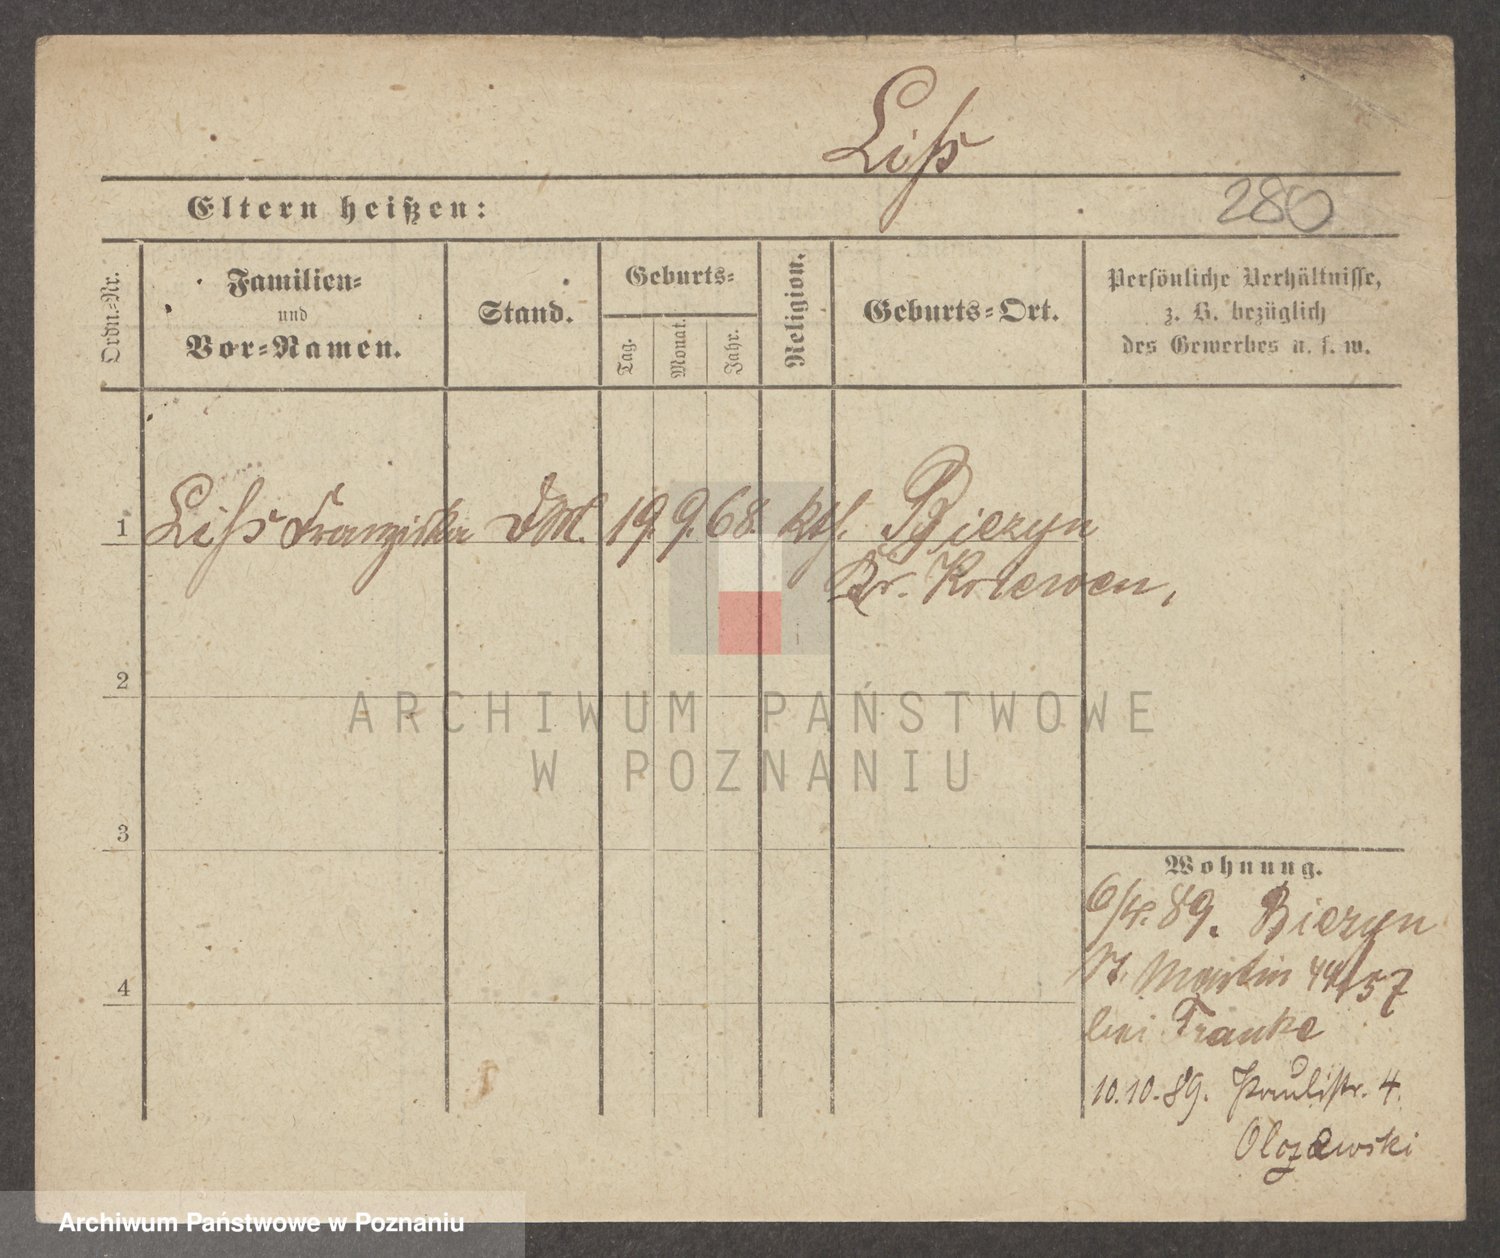 Liß
Eltern heißen:
280
Ordn.-Nr.
Familien-
und
Vor-Namen.
Stand.
Geburts-
Tag.
Monat.
Jahr.
Religion.
Geburts-Ort.
Persönliche Verhältnisse,
z. B. bezüglich
des Gewerbes u. s. w.
1 Liß Franziska 19. 9. 68. kth. Bierzyn
Kr. Kriewen,
2
3
4
Wohnung.
6/4. 89. Bierzyn
St. Martin 44/57
bei Franke
10.10.89. Paulistr. 4.
Olszewski
ARCHIWUM PAŃSTWOWE
W POZNANIU
Archiwum Państwowe w Poznaniu